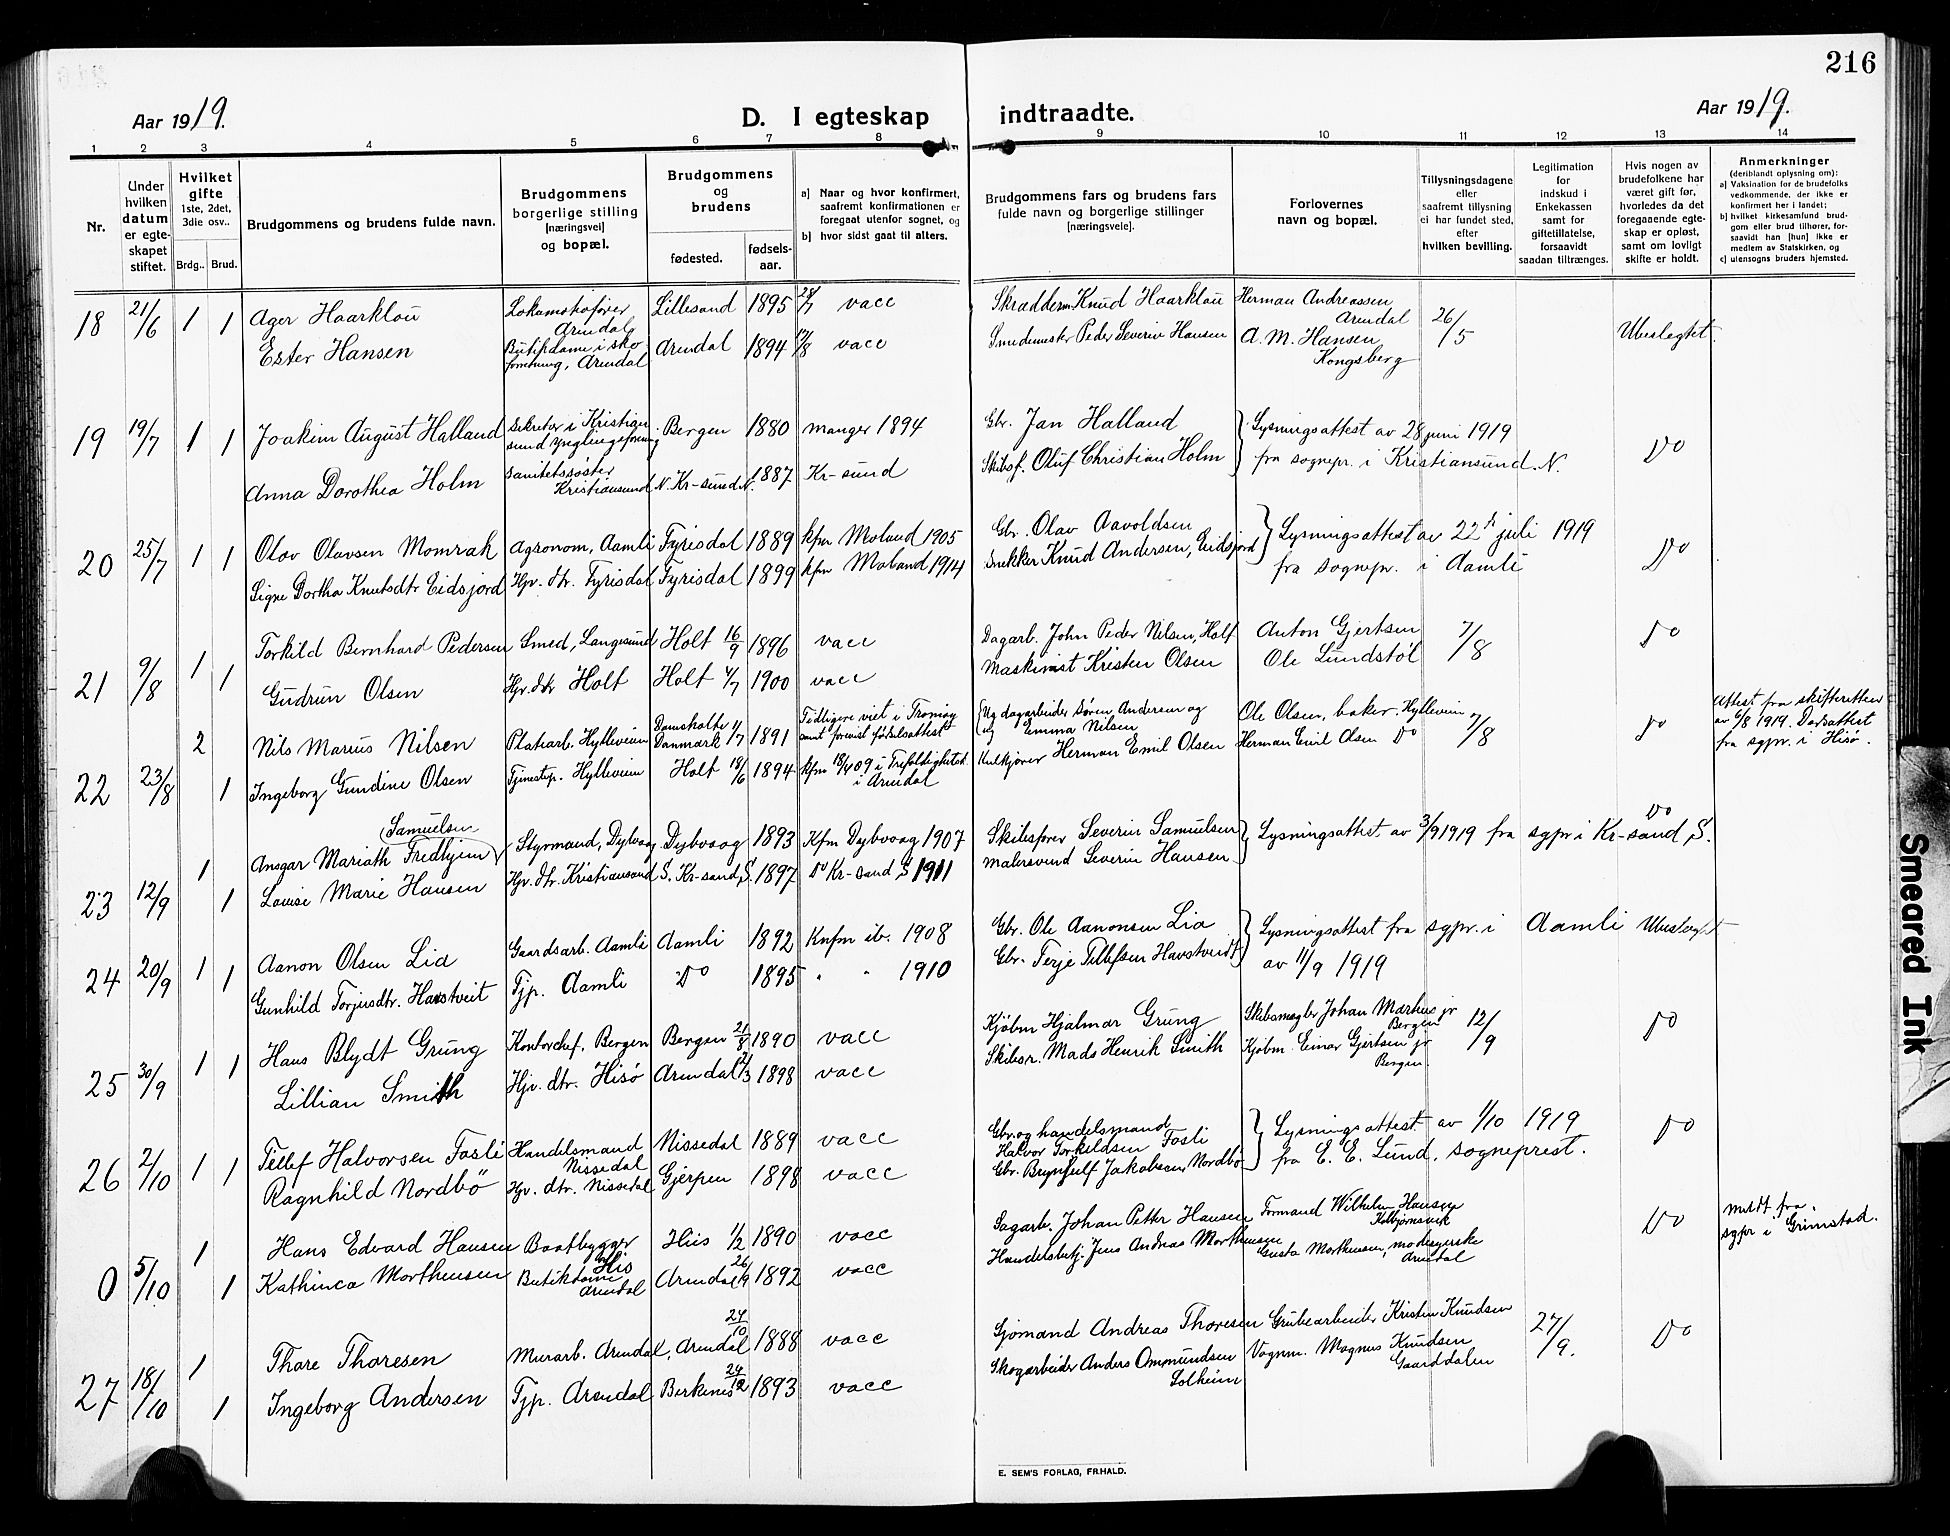 216
Aar 1919.
D. I egteskap indtraadte.
Aar 1919.
1 2 3 4 5 6 7 8 9 10 11 12 13 14
Nr.
Under hvilken datum er egteskapet stiftet.
Hvilket gifte 1ste, 2det, 3die osv..
Brdg.. Brud.
Brudgommens og brudens fulde navn.
Brudgommens borgerlige stilling [næringsvei] og bopæl.
Brudgommens og brudens
fødested. fødsels-aar.
a) Naar og hvor konfirmert, saafremt konfirmationen er foregaat utenfor sognet, og
b) hvor sidst gaat til alters.
Brudgommens fars og brudens fars fulde navn og borgerlige stillinger [næringsveie].
Forlovernes navn og bopæl.
Tillysningsdagene eller saafremt tillysning ei har fundet sted, efter hvilken bevilling.
Legitimation for indskud i Enkekassen samt for giftetillatelse, forsaavidt saadan tiltrænges.
Hvis nogen av brudefolkene har været gift før, hvorledes da det foregaaende egteskap er opløst, samt om lovligt skifte er holdt.
Anmerkninger (deriblandt oplysning om):
a) Vaksination for de brudefolks vedkommende, der ikke er konfirmert her i landet;
b) hvilket kirkesamfund brudgom eller brud tilhører, forsaavidt han [hun] ikke er medlem av Statskirken, og
c) utensogns bruders hjemsted.
18 21/6 1 1 Ager Haarklou Lokomotivfører Arendal Lillesand 1895 vacc Skræddern Knud Haarklou Herman Andreassen Arendal 26/5 Ubeslegtet.
Ester Hansen Butikdame i skoforretning, Arendal Arendal 1894 vacc Smedmester Peder Severin Hansen A. M. Hansen Kongsberg
19 19/7 1 1 Joakim August Halland Sekretær i Kristiansund Ynglingeforening Bergen 1880 Manger 1894 Gbr. Jan Halland Lysningsattest av 28 juni 1919 Do
Anna Dorothea Holm Sanitetssøster Kristiansund N. Kr-sund N. 1887 Kr-sund Skibsf. Oluf Christian Holm fra sognepr. i Kristiansund. N.
20 25/7 1 1 Olav Olavsen Momrak Agronom, Aamli Fyrisdal 1889 kfm Moland 1905 Gbr. Olav Aavoldsen Lysningsattest av 22 juli 1919 Do
Signe Dortha Knutsdtr Eidsjord Hjv. dtr. Fyrisdal Fyrisdal 1899 kfm Moland 1914 Snekker Knud Andersen, Eidsjord fra sognepr. i Aamli
21 9/8 1 1 Torkild Bernhard Pedersen Smed, Langesund Holt 16/9 1896 vacc Dagarb. John Peder Nilsen, Holt Anton Gjertsen 7/8 Do
Gudrun Olsen Hjv. dtr Holt Holt 4/7 1900 vacc Maskinist Kristen Olsen Ole Lundstøl
22 23/8 2 1 Nils Marius Nilsen Platearb. Hylleveien Danmark 1/7 1891 Tidligere viet i Tromøy samt forevist fødselsattest Ug dagarbeider Søren Andersen og Ug Emma Nilsen Ole Olsen, baker. Hylleveien 7/8 Do Attest fra skifteretten av 6/8 1919. Dødsattest fra sgpr. i Hisø.
Ingeborg Gundine Olsen Tjenestep. Hylleveien Holt 18/6 1894 kfm 18/4 09 i Trefoldighetsk. i Arendal Kulkjører Herman Emil Olsen Herman Emil Olsen Do
23 12/9 1 1 Ansgar Mariath Fredhjem Samuelsen Styrmand, Dybvaag Dybvaag 1893 Kfm Dybvaag 1907 Skibsfører Severin Samuelsen Lysningsattest av 3/9 1919 fra sgpr i Kr-sand S. Do
Louise Marie Hansen Hjv. dtr. Kristiansand S. Kr-sand S. 1897 Do Kr-sand S 1911 Malersvend Severin Hansen
24 20/9 1 1 Aanon Olsen Lia Gaardsarb. Aamli Aamli 1892 Knfm ib. 1908 Gbr. Ole Aanonsen Lia Lysningsattest fra sgpr. i Aamli Ubeslegt
Gunhild Torjusdtr. Havstveit Tjp. Aamli Do 1895 " " 1910 Gbr. Terje Tellefsen Havstveidt av 11/9 1919
25 30/9 1 1 Hans Blydt Grung Kontorchef, Bergen Bergen 21/8 1890 vacc Kjøbm Hjalmar Grung Skibsmægler Johan Martens jr Bergen 12/9 Do
Lillian Smith Hjv. dtr. Hisø Arendal 1898 vacc Skibsr. Mads Henrik Smith Kjøbm. Einar Gjertsen jr Bergen.
26 2/10 1 1 Tellef Halvorsen Fosli Handelsmand Nissedal Nissedal 1889 vacc Gbr. og handelsmand Halvor Torkildsen Fosli Lysningsattest av 1/10 1919 Do
Ragnhild Nordbö Hjv. dtr. Nissedal Gjerpen 1898 vacc Gbr. Brynjulf Jakobsen Nordbö fra E. E. Lund, sogneprest.
0 5/10 1 1 Hans Edvard Hansen Baatbygger His His 1/2 1890 vacc Sagarb. Johan Petter Hansen Formand Wilhelm Hansen Kolbjørnsvik Do meldt fra sgpr i Grimstad.
Kathinca Morthensen Butikdame Arendal Arendal 26/9 1892 vacc Handelsbetj. Jens Andreas Morthensen Gusta Morthensen, modesyerske Arendal
27 18/10 1 1 Thore Thoresen Murarb. Arendal, Arendal 24/10 1888 vacc Sjømand Andreas Thoresen Grubearbeider Kristen Knudsen 27/9. Do
Ingeborg Andersen Tjp. Arendal Berkenes 24/12 1893 vacc Skogarbeider Anders Ommundsen Solheim Vognm. Magnus Knudsen Gaarddalen
E. SEM'S FORLAG, FR.HALD.
Smeared Ink